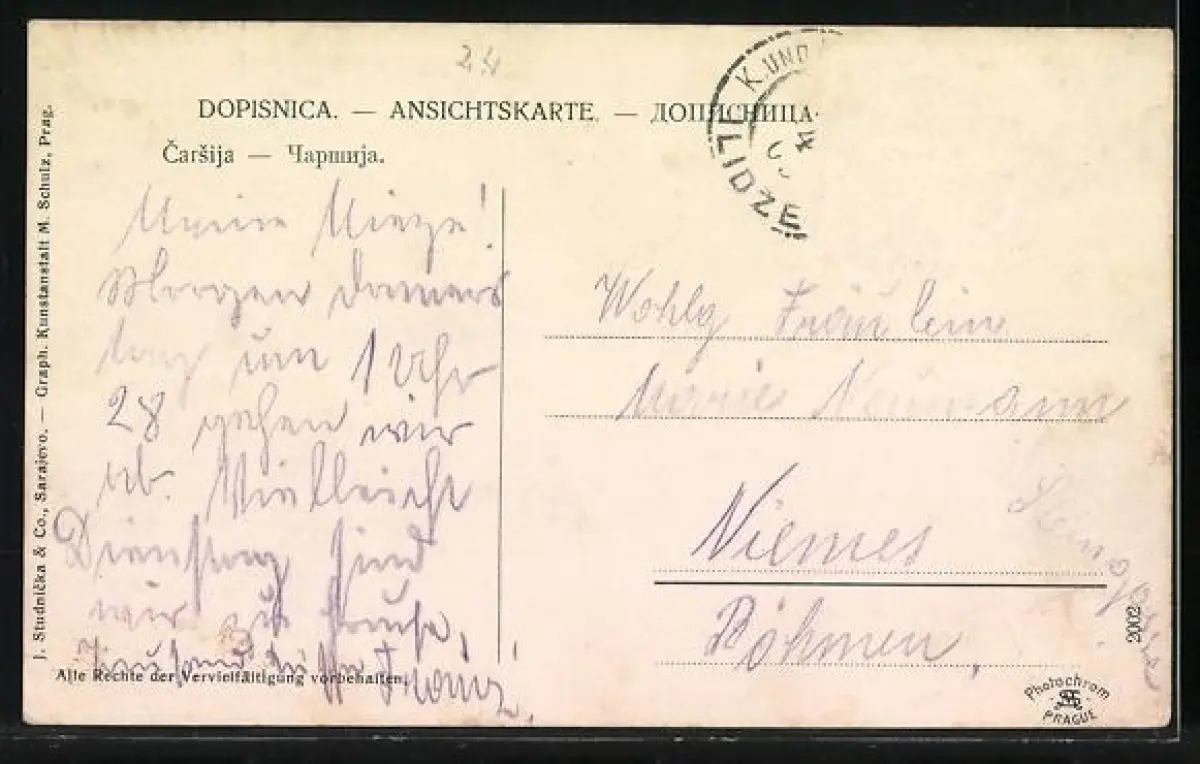 24
DOPISNICA. — ANSICHTSKARTE. — ДОПИСНИЦА.
Čaršija — Чаршија.
K. UND
ILIDŽE
J. Studnička & Co., Sarajevo. — Graph. Kunstanstalt M. Schulz, Prag.
Meine Mieze!
Morgen Donners
tag um 1 Uhr
28 gehen wir
ab. Vielleicht
Dienstag sind
wir zu Hause,
Tausend Küsse Franz.
Alte Rechte der Vervielfältigung vorbehalten.
Wohlg Fräulein
Marie Neumann
Niemes
Böhmen,
2002
Photochrom
PRAGUE